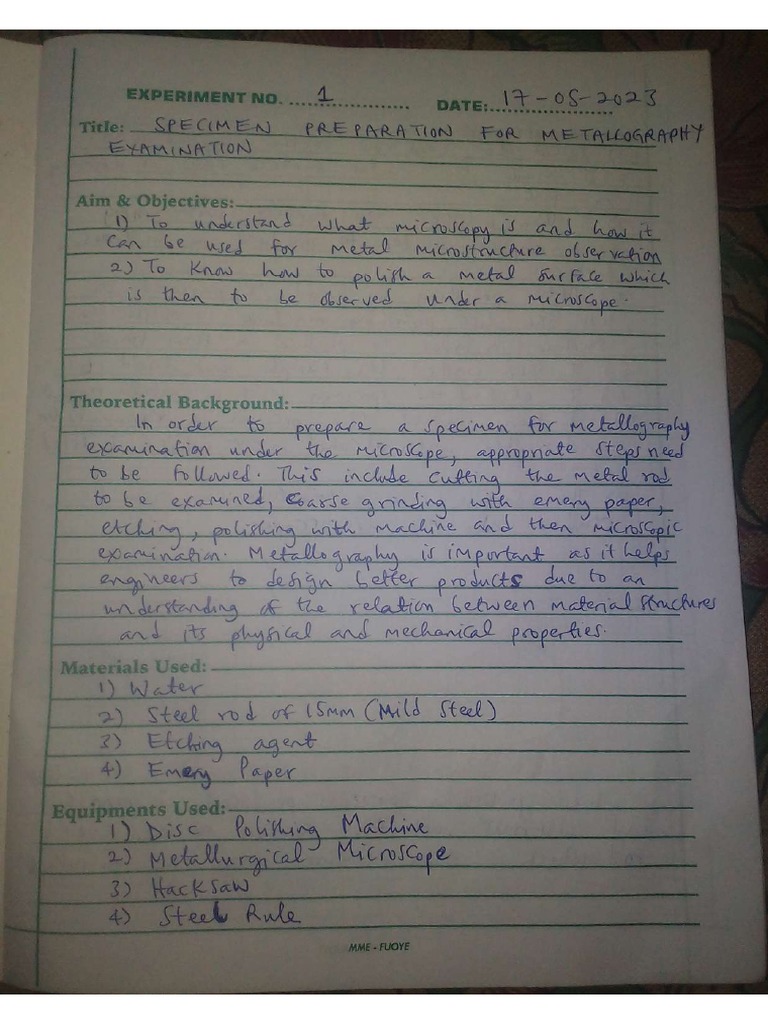 EXPERIMENT NO. ......1.................. DATE:..17-05-2023
Title: SPECIMEN PREPARATION FOR METALLOGRAPHY
EXAMINATION
Aim & Objectives:
1) To understand what microscopy is and how it
can be used for metal microstructure observation
2) To know how to polish a metal surface which
is then to be observed under a microscope.
Theoretical Background:
In order to prepare a specimen for metallography
examination under the microscope, appropriate steps need
to be followed. This include cutting the metal rod
to be examined, coarse grinding with emery paper,
etching, polishing with machine and then microscopic
examination. Metallography is important as it helps
engineers to design better products due to an
understanding of the relation between material structures
and its physical and mechanical properties.
Materials Used:
1) Water
2) Steel rod of 15mm (Mild Steel)
3) Etching agent
4) Emery Paper
Equipments Used:
1) Disc Polishing Machine
2) Metallurgical Microscope
3) Hacksaw
4) Steel Rule
MME - FUOYE